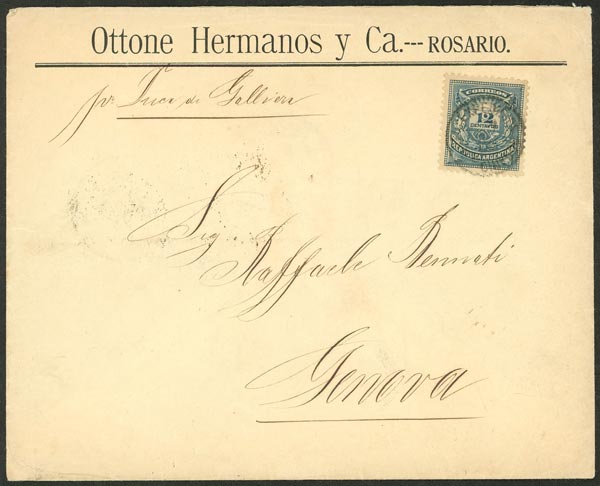 Ottone Hermanos y Ca.--- ROSARIO.
pr. Duca di Galliera
CORREOS
12
CENTAVOS
REPUBLICA ARGENTINA
Sig. Raffaele Bennati
Genova